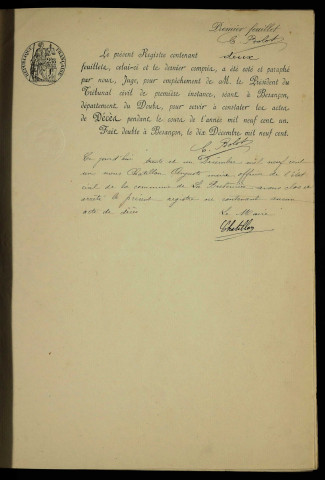 Premier feuillet
Le présent Registre contenant deux
feuillets, celui-ci et le dernier compris, a été coté et paraphé
par nous, Juge, pour empêchement de M. le Président du
Tribunal civil de première instance, séant à Besançon,
département du Doubs, pour servir à constater les actes
de Décès pendant le cours de l'année mil neuf cent un.
Fait double à Besançon, le dix Décembre mil neuf cent.
Ce jourd'hui trente et un Décembre mil neuf cent
un nous Chatillon maire officier de l'état
civil de la commune de La avons clos et
arrêté le présent registre ne contenant aucun
acte de décès
Le Maire
Chatillon